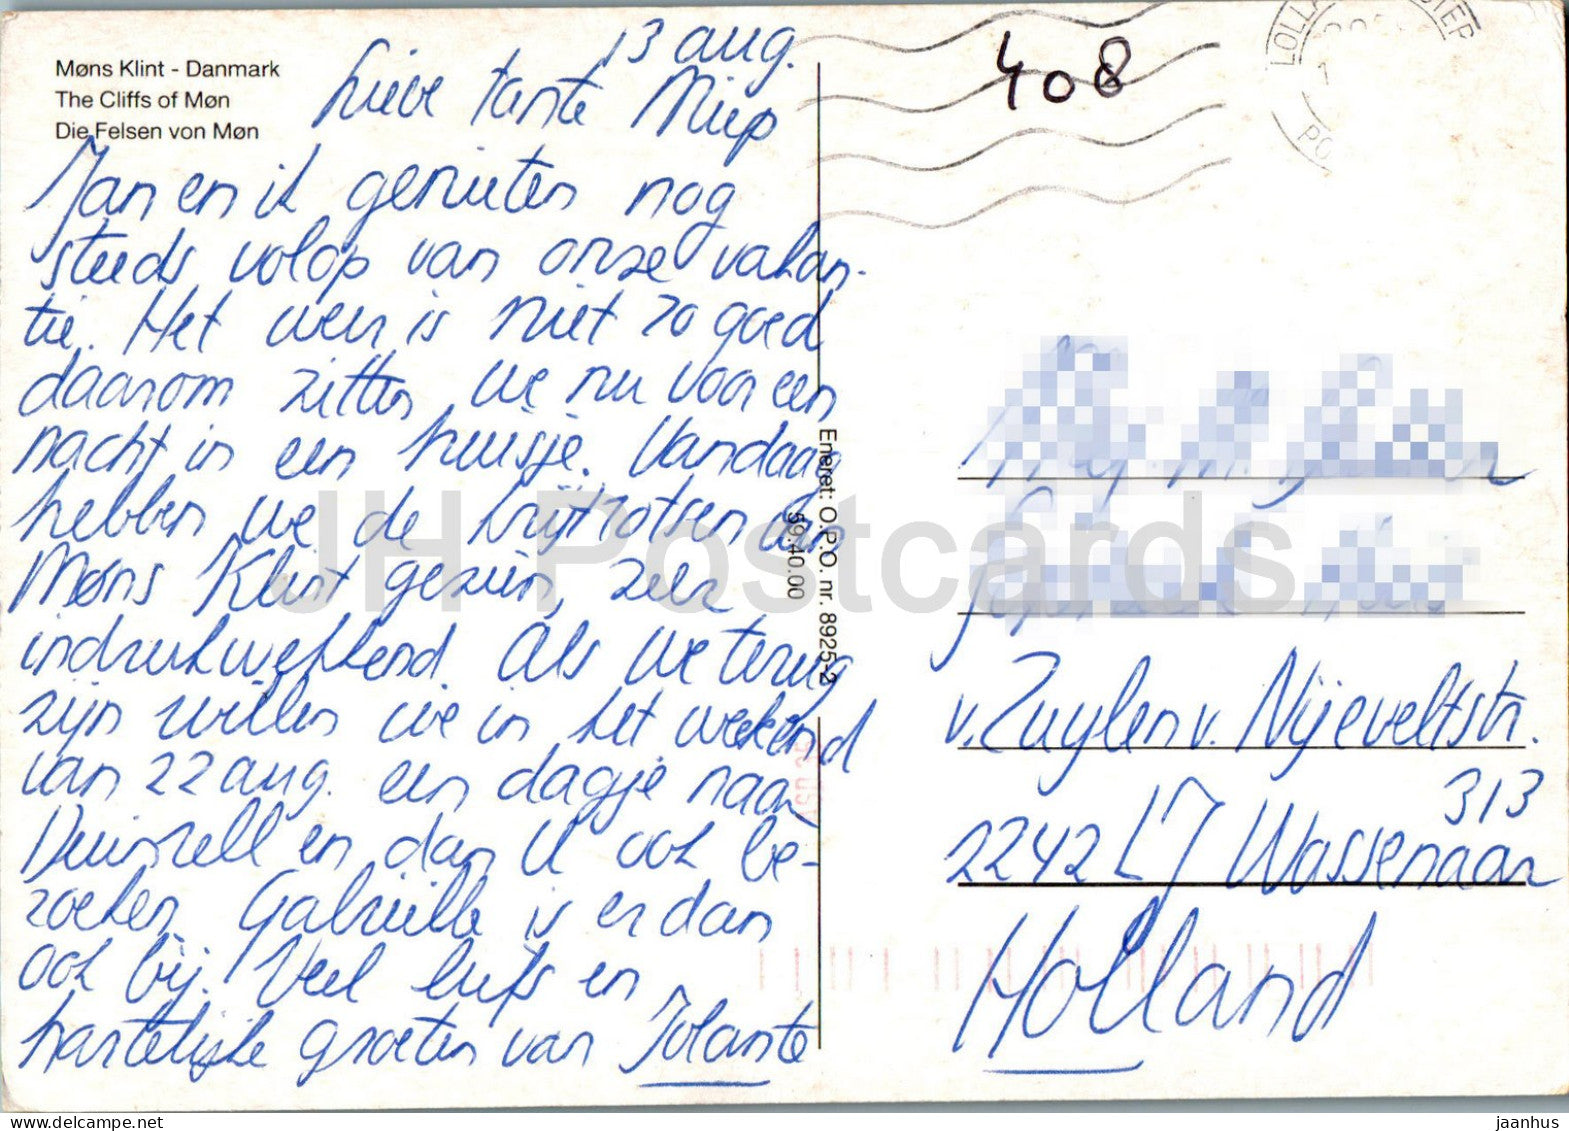 Møns Klint - Danmark
The Cliffs of Møn
Die Felsen von Møn
13 aug.
Lieve tante Miep
Jan en ik genieten nog
steeds volop van onze vakan-
tie. Het weer is niet zo goed
daarom zitten we nu voor een
nacht in een huisje. Vandaag
hebben we de krijtrotsen van
Møns Klint gezien, zeer
indrukwekkend. Als we terug
zijn willen we in het weekend
van 22 aug. een dagje naar
Duinrell en dan U ook be-
zoeken. Gabriëlle is er dan
ook bij. Veel liefs en
hartelijke groeten van Jolante
Eneret: O.P.O. nr. 8925-2
59.40.00
408
v. Zuylen v. Nijeveltstr.
313
2242 LJ Wassenaar
Holland
JH Postcards
delcampe.net
jaanhus